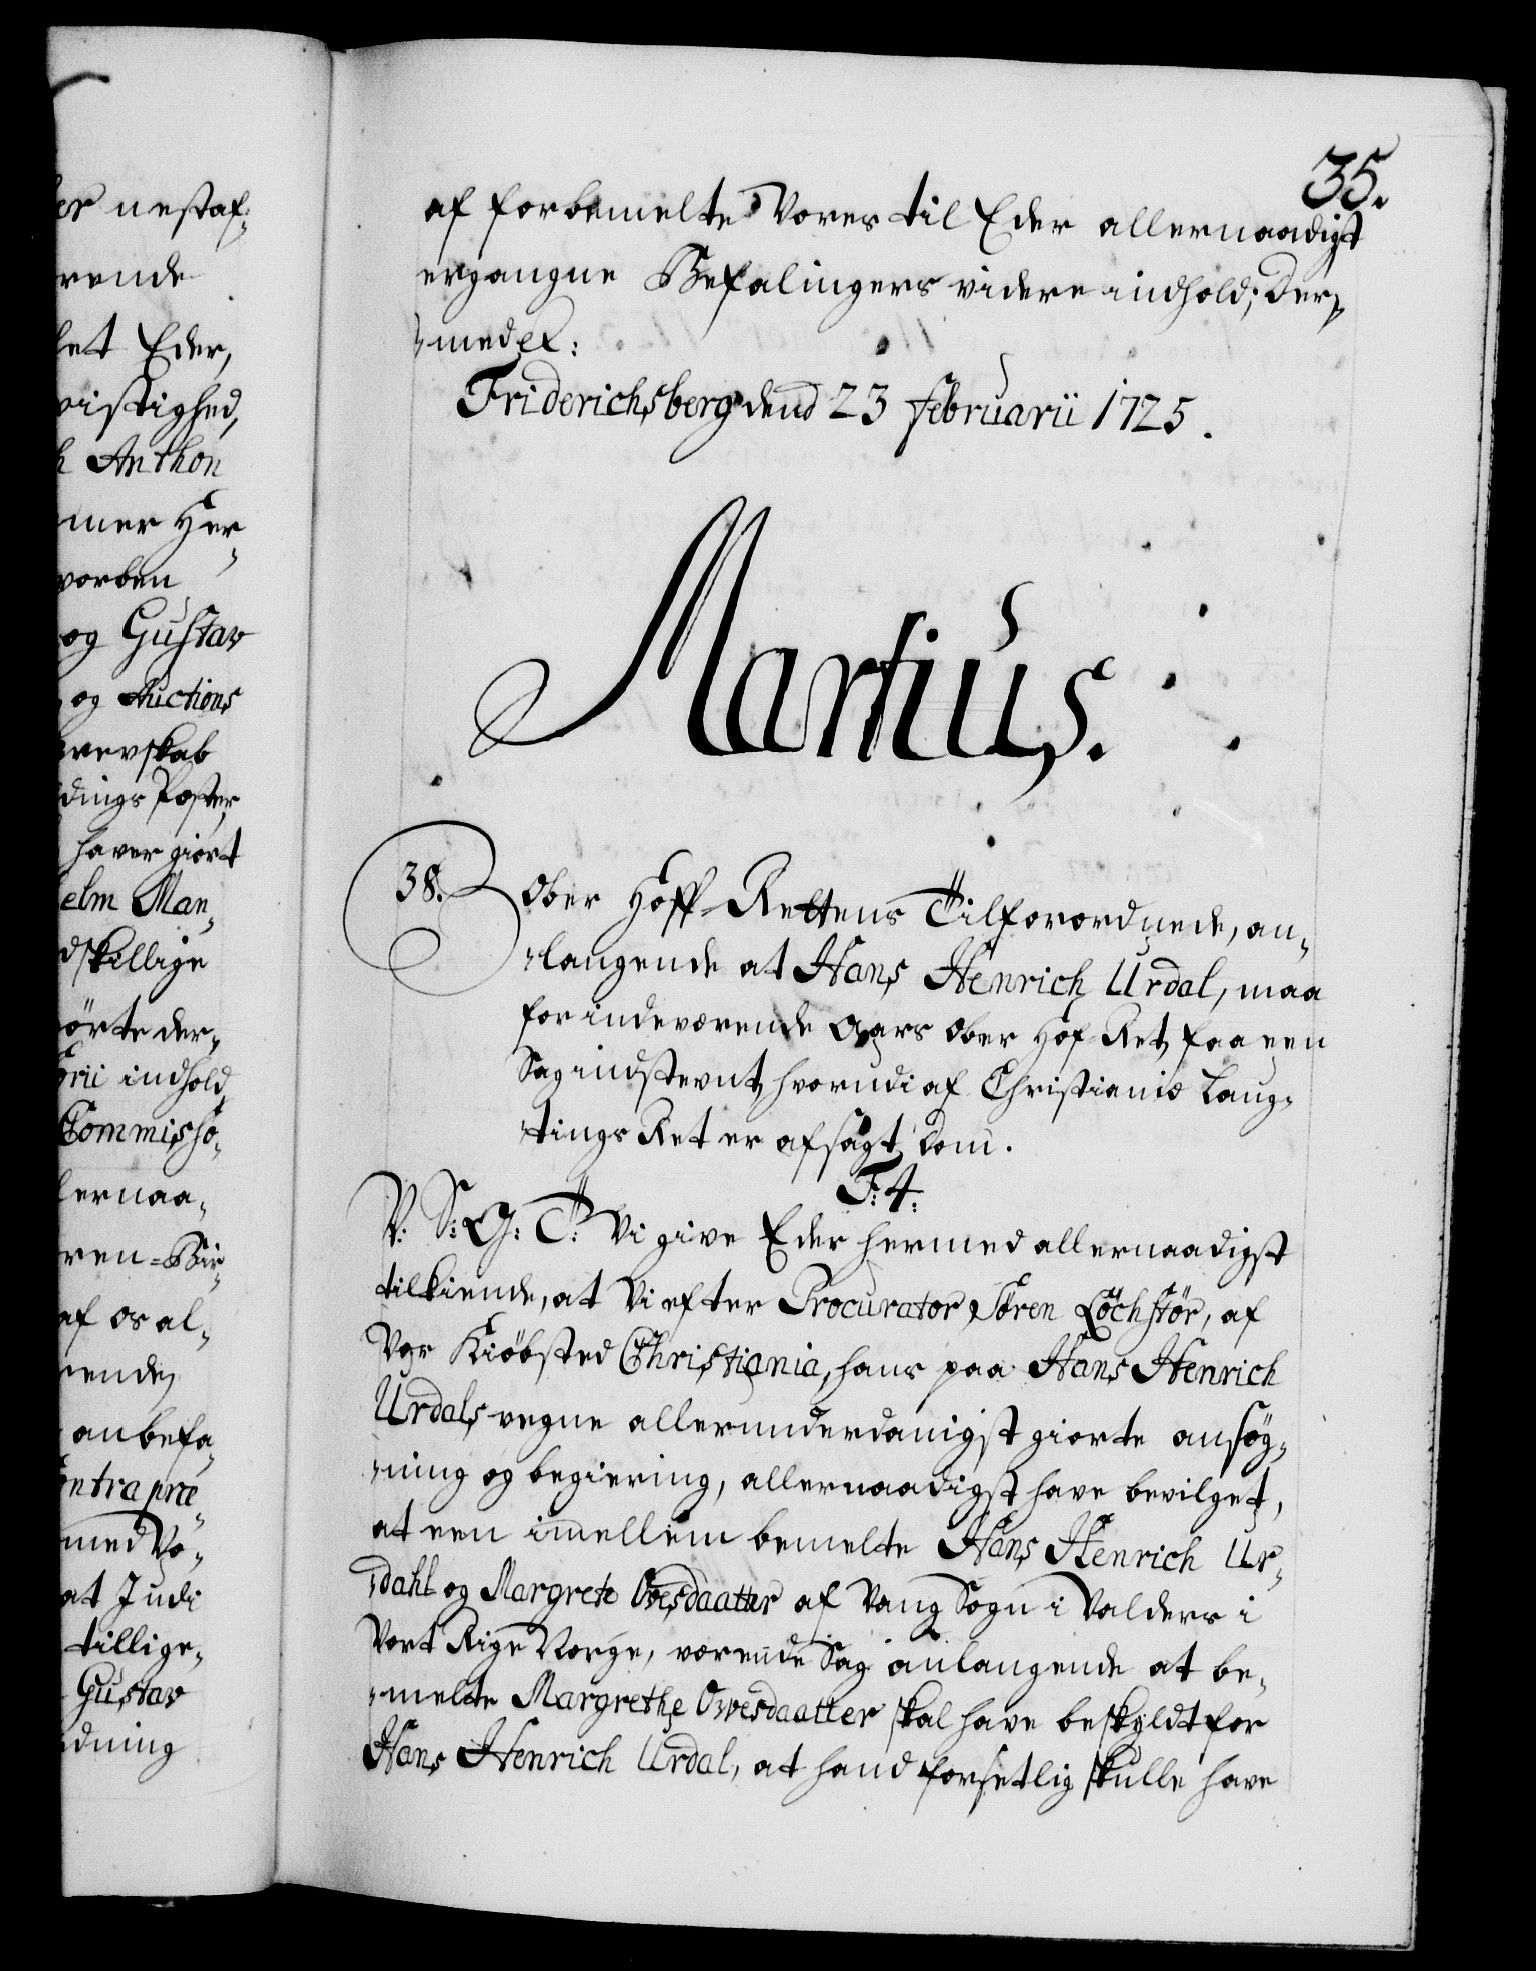 er nestaf:
rende
let Eder,
vistighed,
h Anthon
mer Her-
vorben
og Gustav
og Auctions
rrevskab
dings Poster
haver giort
elm Man-
dskillige
hörte der-
orii indhold
Commisso-
lernaa-
ren Bir-
af os al-
rende
anbefa-
ontra præ-
med Vo-
at Judi
tillige-
Gustav
dning
35.
af forbemelte Vores til Eder allernaadigst
ergangne Befalingers videre indhold; Der-
-med etc:
Friderichsberg dend 23 februarii 1725.
Martius.
38.
Ober Hoff-Rettens Tilforordnede, an-
-langende at Hans Henrich Urdal, maa
for indeværende Aars Ober Hof-Ret, faa een
Sag indstevnt, hvorudi af Christianiæ Laug-
-tings Ret er afsagt Dom.
F: 4:
V: S: G: T: Vi give Eder hermed allernaadigst
tilkiende, at Vi efter Procurator Sören Löchstör, af
Vor Kiöbsted Christiania, hans paa Hans Henrich
Urdals vegne allerunderdanigst giorte ansög-
-ning og begiering, allernaadigst have bevilget,
at een imellem bemelte Hans Henrich Ur-
-dahl og Margrete Ovesdaatter af Vang Sogn i Valders i
Vort Rige Norge, værende Sag anlangende at be-
-melte Margrethe Ovesdaatter skal have beskyldt for
Hans Henrich Urdal, at hand forsetlig skulle have